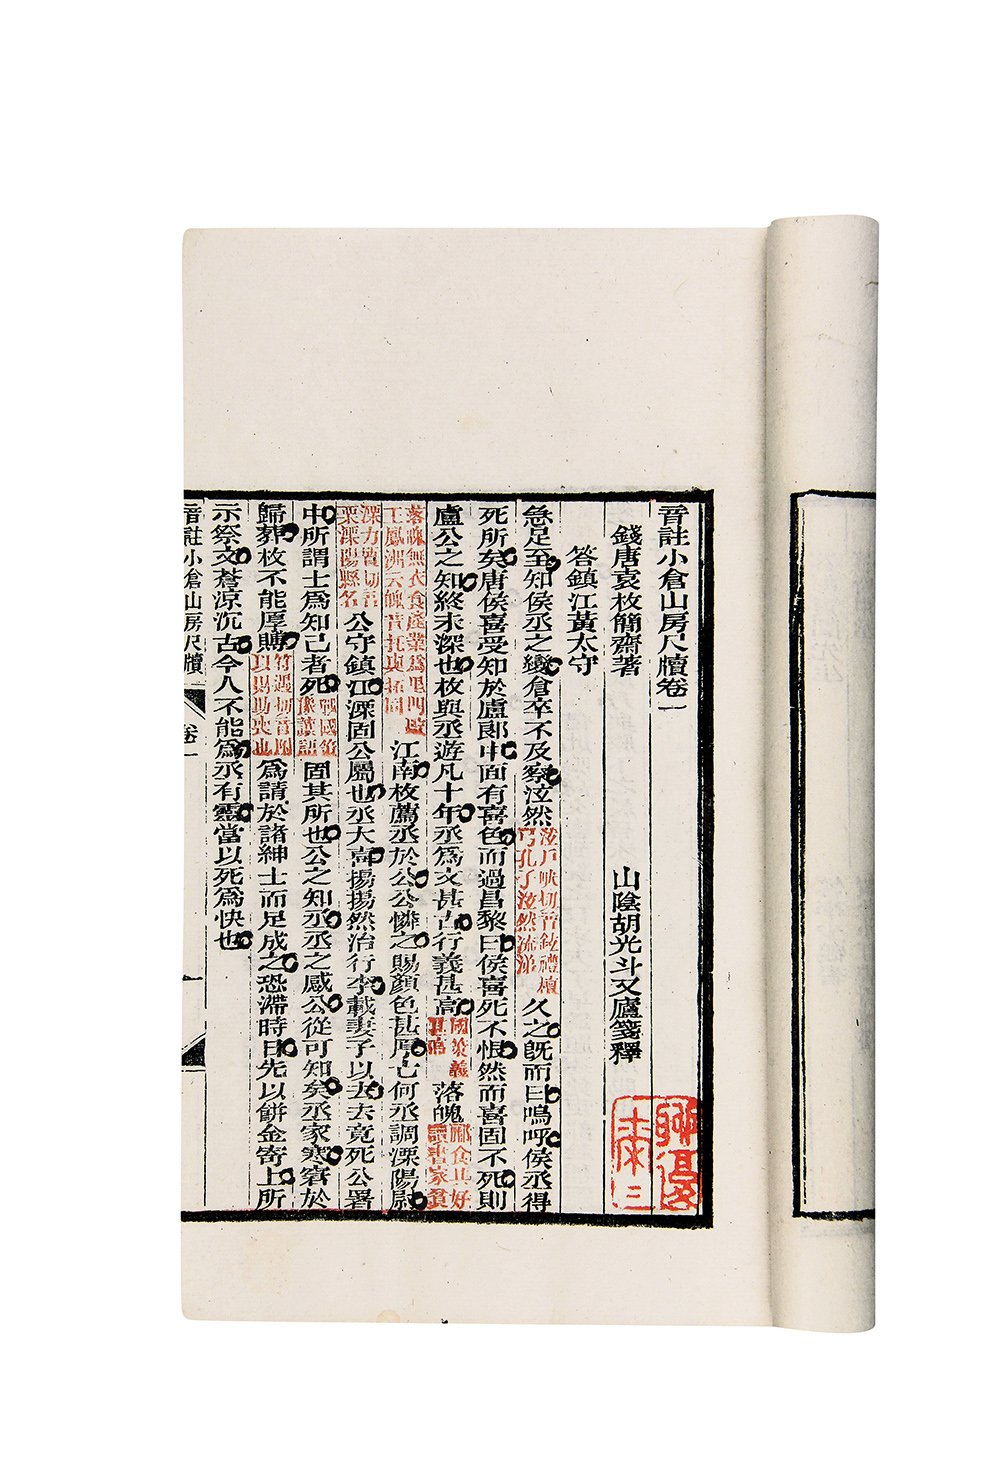 音註小倉山房尺牘卷一
錢唐袁枚簡齋著 山陰胡光斗又廬箋釋
答鎮江黃太守
急足至知侯丞之變倉卒不及察泫然 泫戶畎切音鉉禮檀弓孔子泫然流涕 久之既而曰嗚呼侯丞得
死所矣唐侯喜受知於盧郎中面有喜色而過昌黎曰侯喜死不恨然而喜固不死則
盧公之知終未深也枚與丞遊凡十年丞為文甚古行義甚高 國策義甚高 落魄 酈食其好讀書家貧
落魄無衣食產業為里門 王鳳洲云魄音托與拓同 江南枚薦丞於公公憐之賜顏色甚厚亡何丞調溧陽尉
溧力質切音栗溧陽縣名 公守鎮江溧固公屬也丞大喜揚揚然治行李載妻子以去去竟死公署
中所謂士為知己者死 戰國策豫讓語 固其所也公之知丞丞之感公從可知矣丞家寒窘於
歸葬枚不能厚賻 為請於諸紳士而足成之恐滯時日先以餅金寄上所
示祭文蒼涼沉古今人不能為丞有靈當以死為快也
音註小倉山房尺牘 卷一